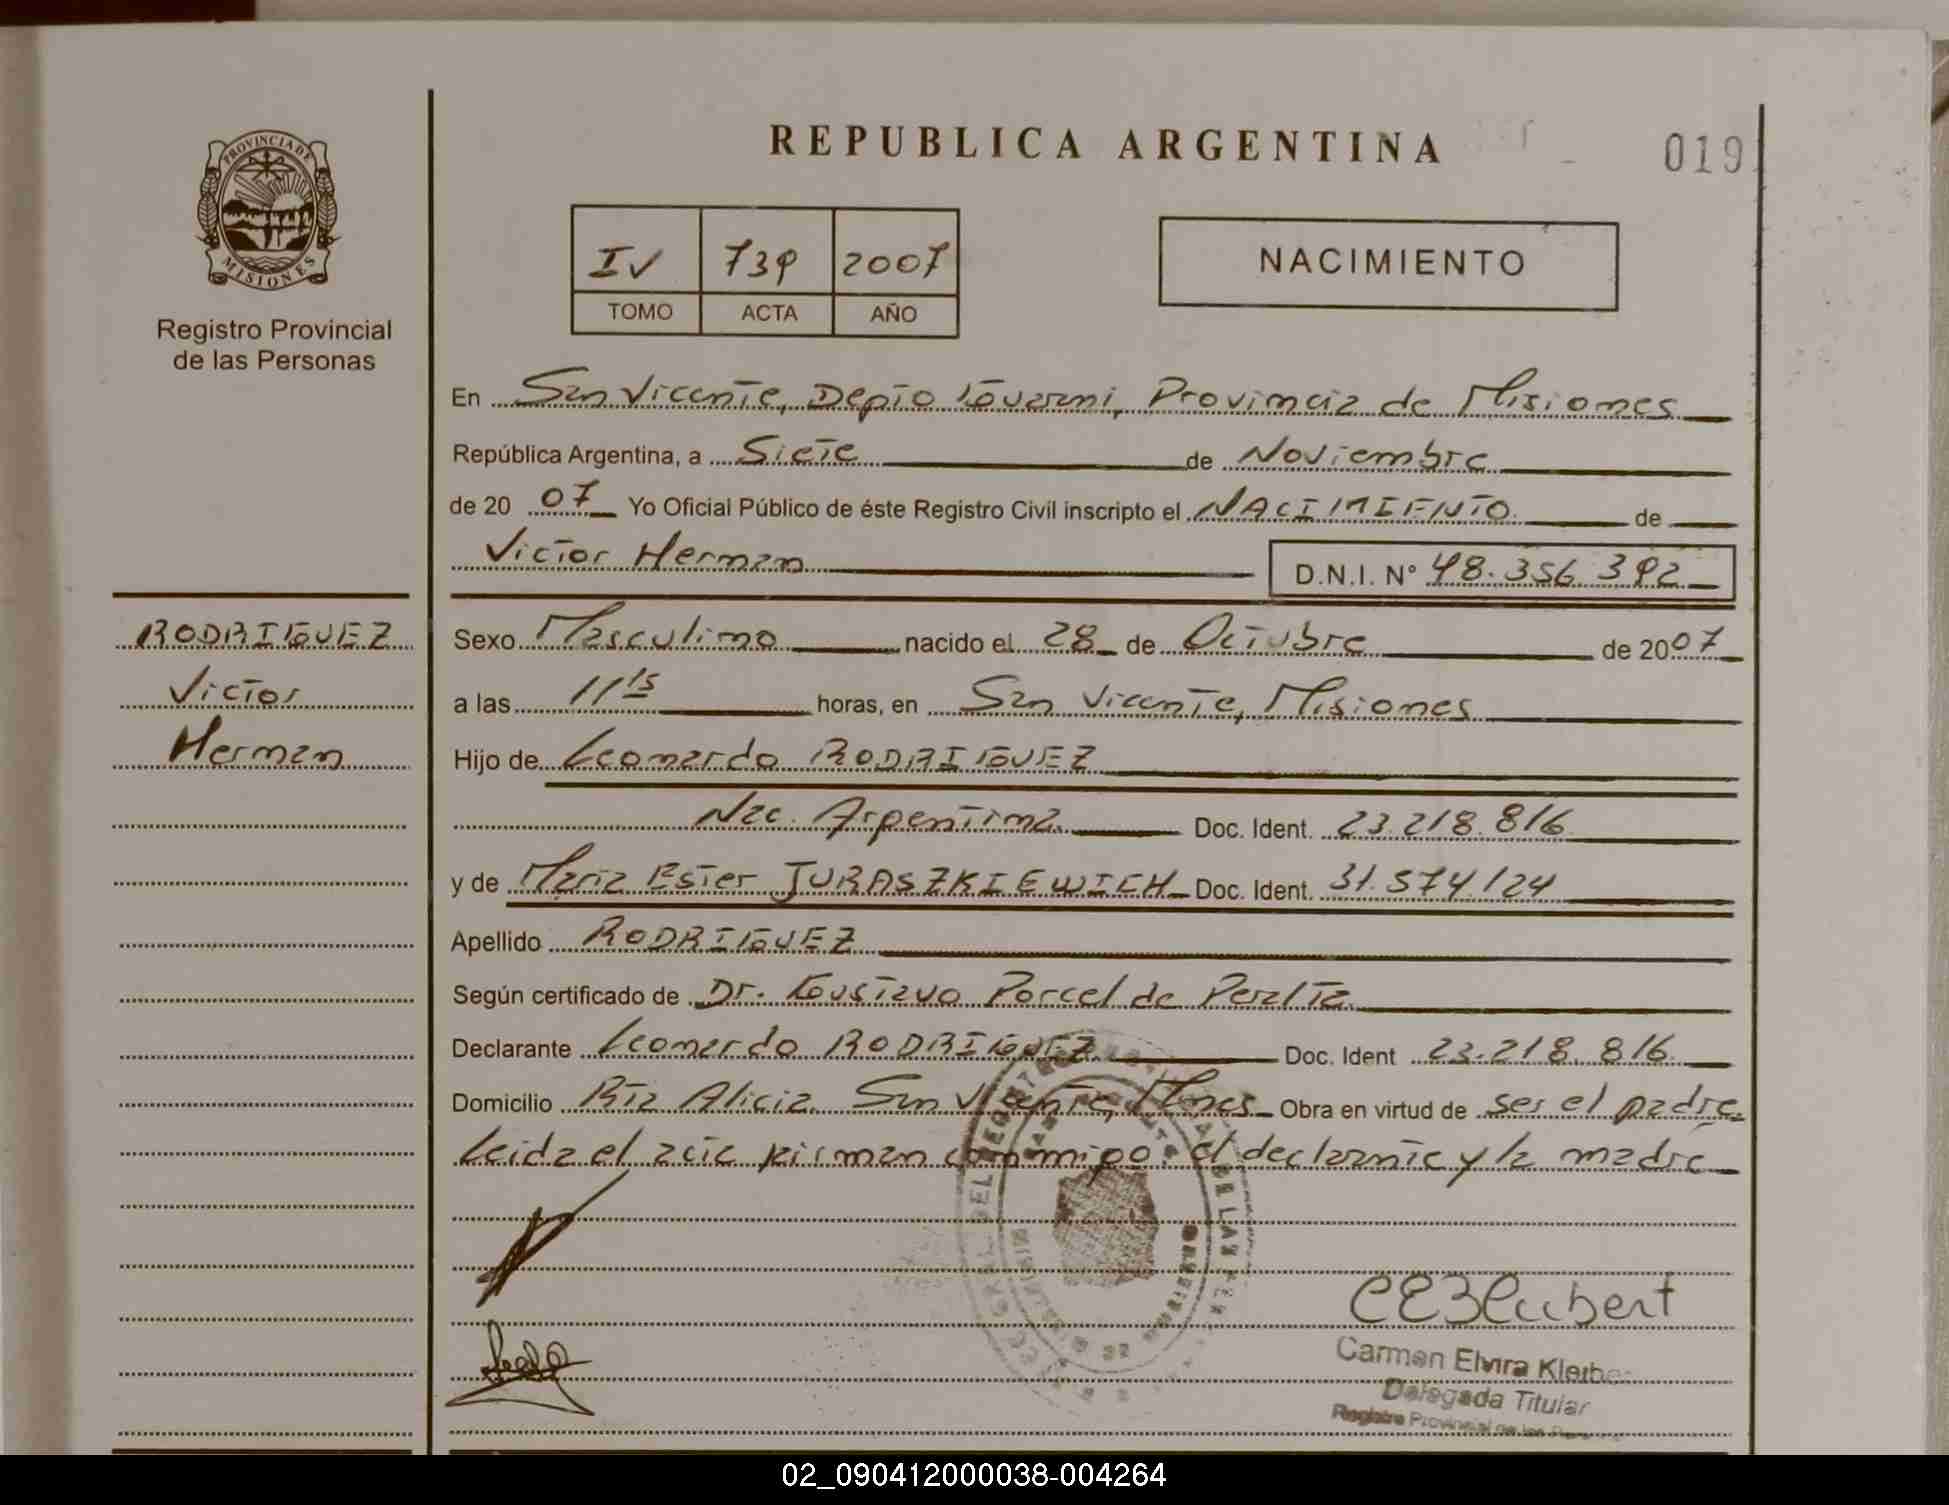 REPUBLICA ARGENTINA
019
PROVINCIA DE
MISIONES
Registro Provincial
de las Personas
IV 739 2007
TOMO ACTA AÑO
NACIMIENTO
En San Vicente, Depto Guarani, Provincia de Misiones
República Argentina, a Siete de Noviembre
de 2007 Yo Oficial Público de éste Registro Civil inscripto el NACIMIENTO de
Victor Herman D.N.I. Nº 48.356.392
RODRIGUEZ
Victor
Herman
Sexo Masculino nacido el 28 de Octubre de 2007
a las 11 15 horas, en San Vicente, Misiones
Hijo de Leonardo RODRIGUEZ
Nac. Argentina Doc. Ident. 23.218.816
y de Maria Ester JURASZKIEWICH Doc. Ident. 31.574.124
Apellido RODRIGUEZ
Según certificado de Dr. Gustavo Porcel de Peralta
Declarante Leonardo RODRIGUEZ Doc. Ident 23.218.816
Domicilio Pta Alicia San Vicente, Mnes Obra en virtud de ser el padre
Leida el acta firman conmigo: el declarante y la madre
Carmen Elvira Kleibe
Delegada Titular
Registro Provincial de las
02_090412000038-004264